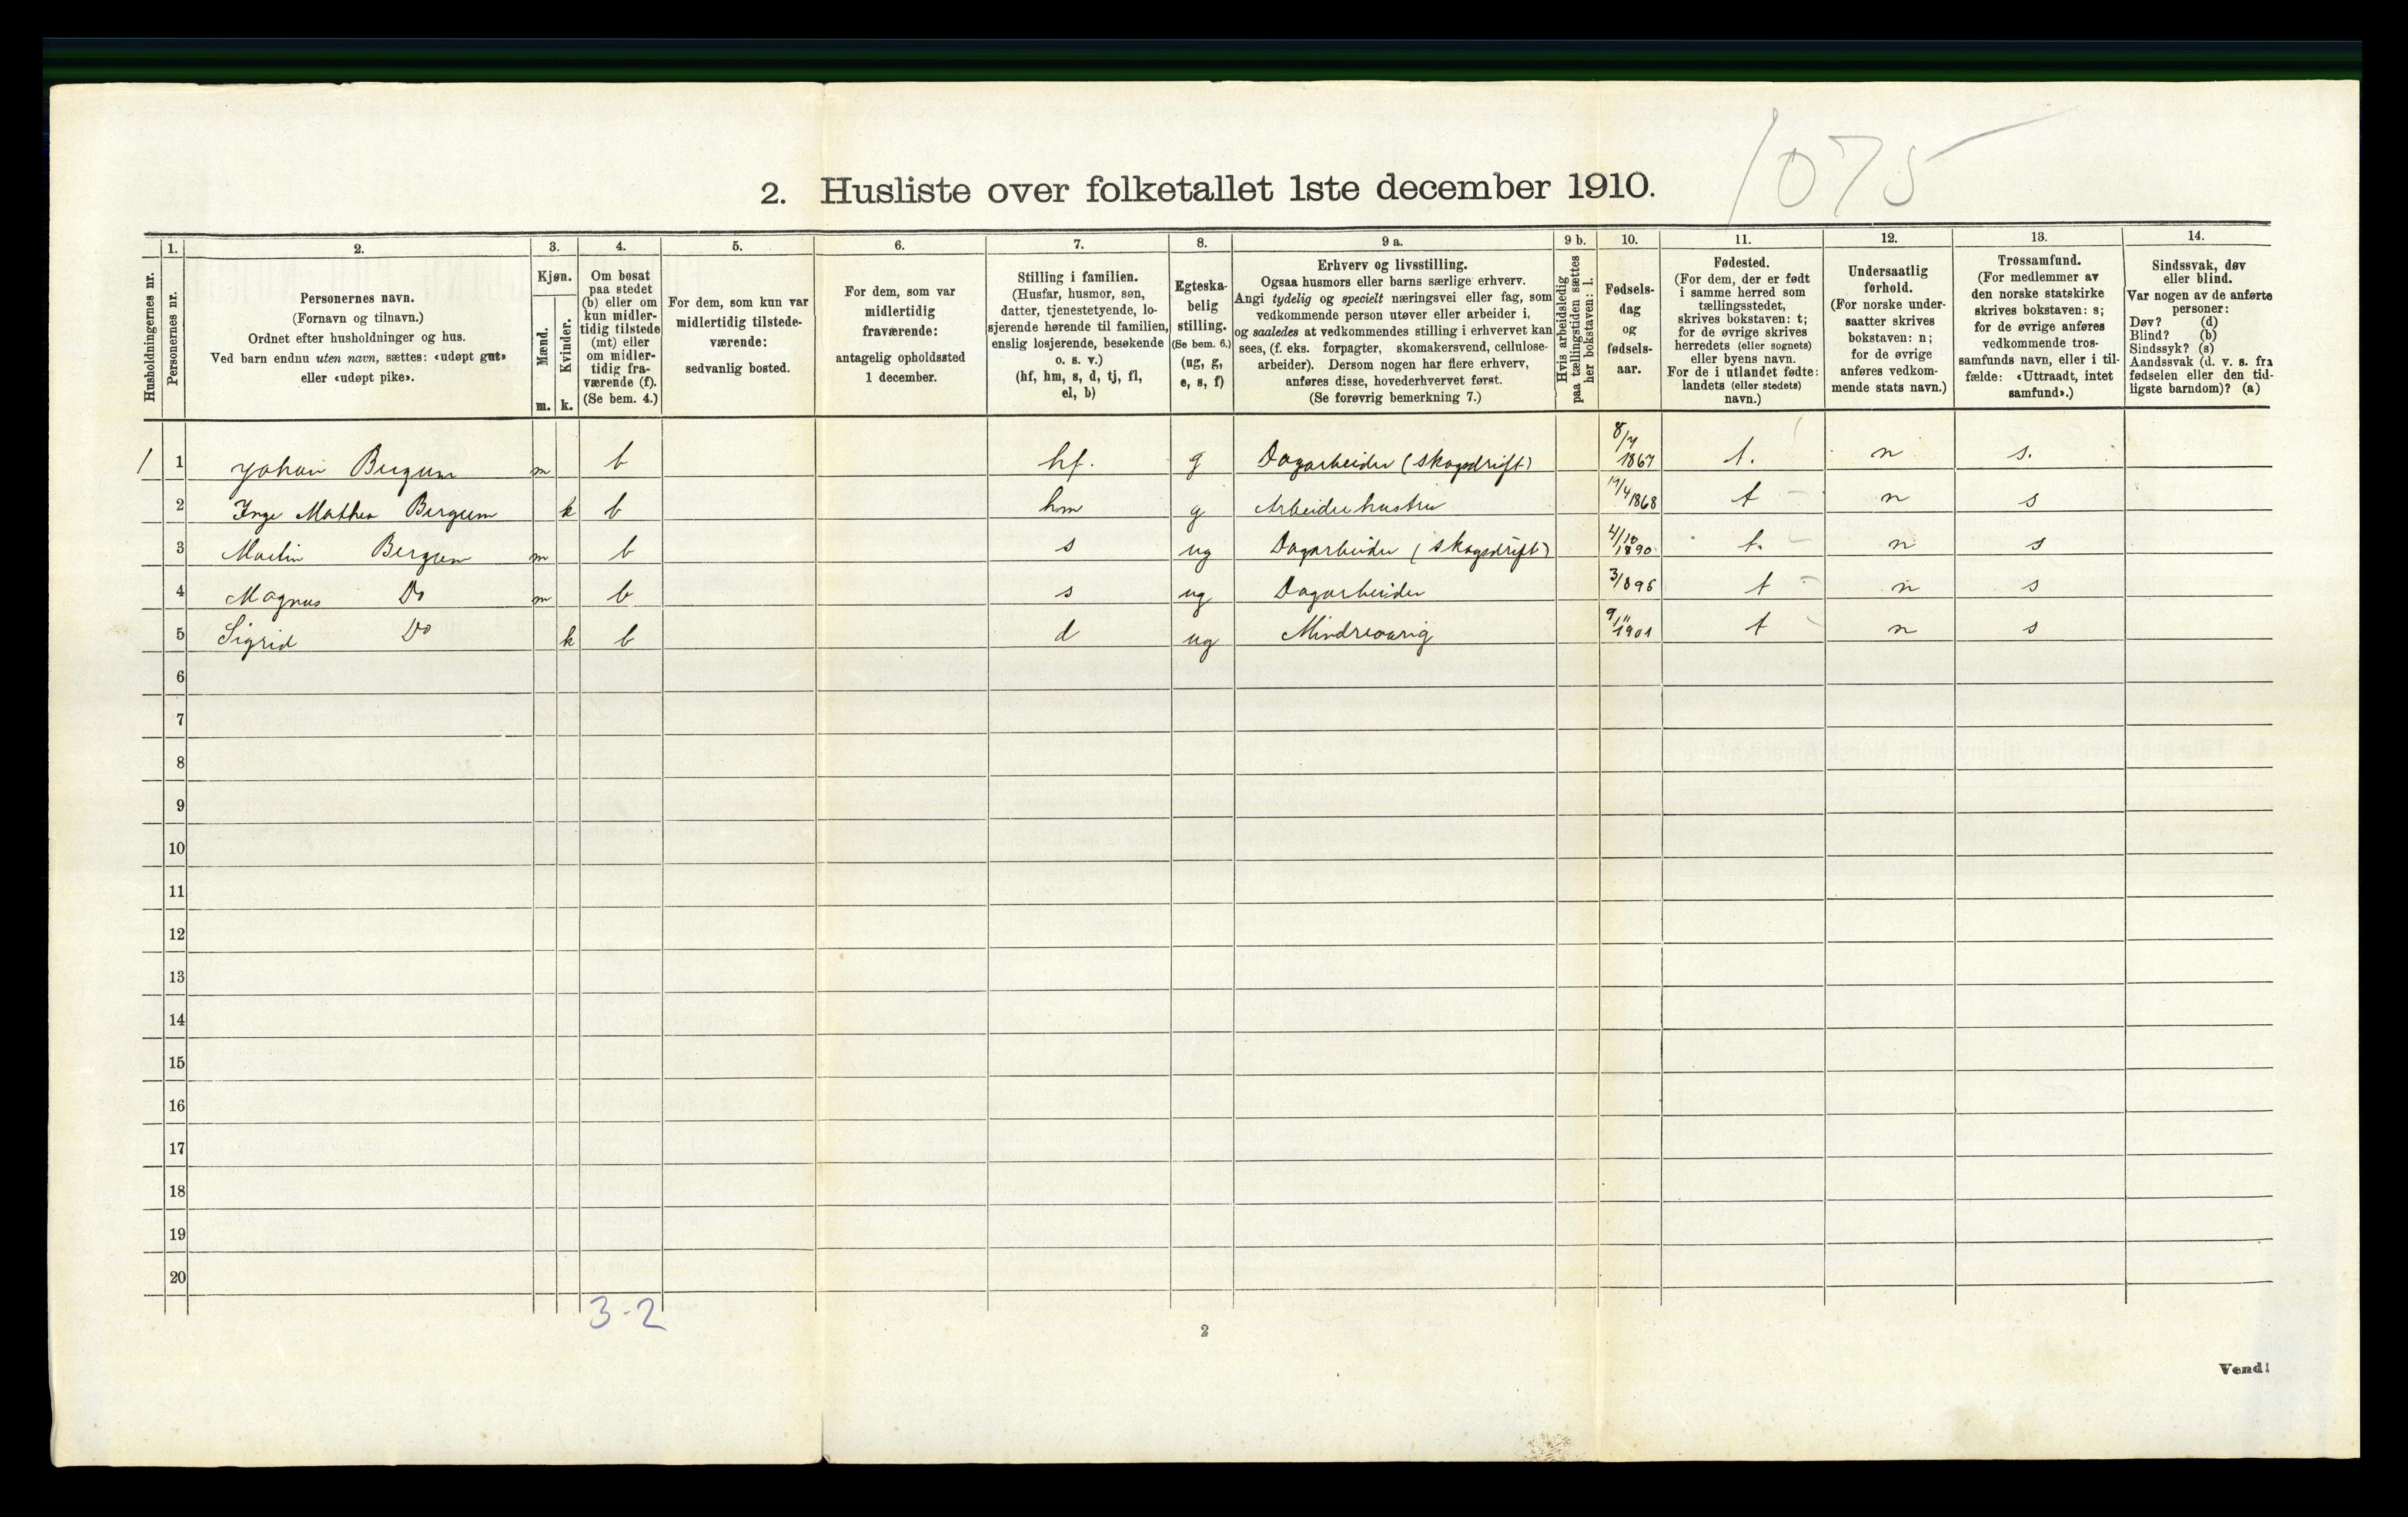 1075
2. Husliste over folketallet 1ste december 1910.
Husholdningernes nr.
1.
Personernes nr.
2.
Personernes navn.
(Fornavn og tilnavn.)
Ordnet efter husholdninger og hus.
Ved barn endnu uten navn, sættes: «udøpt gut»
eller «udøpt pike».
3.
Kjøn.
Mænd.
Kvinder.
m. k.
4.
Om bosat
paa stedet
(b) eller om
kun midler-
tidig tilstede
(mt) eller
om midler-
tidig fra-
værende (f).
(Se bem. 4.)
5.
For dem, som kun var
midlertidig tilstede-
værende:
sedvanlig bosted.
6.
For dem, som var
midlertidig
fraværende:
antagelig opholdssted
1 december.
7.
Stilling i familien.
(Husfar, husmor, søn,
datter, tjenestetyende, lo-
sjerende hørende til familien,
enslig losjerende, besøkende
o. s. v.)
(hf, hm, s, d, tj, fl,
el, b)
8.
Egteska-
belig
stilling.
(Se bem. 6.)
(ug, g,
e, s, f)
9 a.
Erhverv og livsstilling.
Ogsaa husmors eller barns særlige erhverv.
Angi tydelig og specielt næringsvei eller fag, som
vedkommende person utøver eller arbeider i,
og saaledes at vedkommendes stilling i erhvervet kan
sees, (f. eks. forpagter, skomakersvend, cellulose-
arbeider). Dersom nogen har flere erhverv,
anføres disse, hovederhvervet først.
(Se forøvrig bemerkning 7.)
9 b.
Hvis arbeidsledig
paa tællingstiden sættes
her bokstaven: l.
10.
Fødsels-
dag
og
fødsels-
aar.
11.
Fødested.
(For dem, der er født
i samme herred som
tællingsstedet,
skrives bokstaven: t;
for de øvrige skrives
herredets (eller sognets)
eller byens navn.
For de i utlandet fødte:
landets (eller stedets)
navn.)
12.
Undersaatlig
forhold.
(For norske under-
saatter skrives
bokstaven: n;
for de øvrige
anføres vedkom-
mende stats navn.)
13.
Trossamfund.
(For medlemmer av
den norske statskirke
skrives bokstaven: s;
for de øvrige anføres
vedkommende tros-
samfunds navn, eller i til-
fælde: «Uttraadt, intet
samfund».)
14.
Sindssvak, døv
eller blind.
Var nogen av de anførte
personer:
Døv? (d)
Blind? (b)
Sindssyk? (s)
Aandssvak (d. v. s. fra
fødselen eller den tid-
ligste barndom)? (a)
1 1 Johan Bergum m b hf. g Dagarbeider (skogsdrift) 8/7 1867 t. n s.
2 Inge Mathea Bergum k b hm g Arbeiderhustru 17/4 1868 t n s
3 Martin Bergum m b s ug Dagarbeider (skogsdrift) 4/10 1890 t. n s
4 Magnus Do m b s ug Dagarbeider 3/8 96 t n s
5 Sigrid Do k b d ug Mindreaarig 9/11 1901 t n s
6
7
8
9
10
11
12
13
14
15
16
17
18
19
20
3-2
2
Vend!